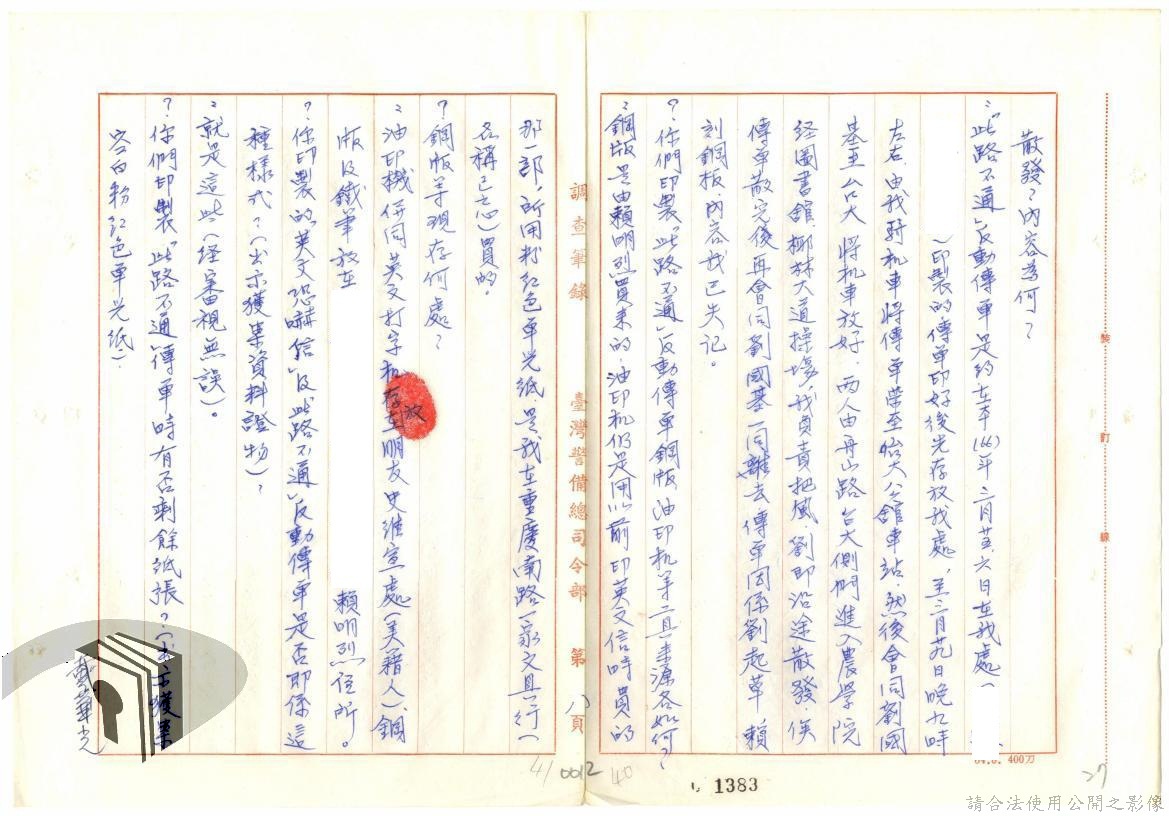 散發？內容為何？
：「此路不通」反動傳單是約在本(66)年三月廿五、六日在我處（
）印製的傳單印好後先存放我處，至三月廿九日晚九時
左右，由我騎机車將傳單帶至台大公館車站，然後會同劉國
基至台大，將机車放好，兩人由舟山路台大側門進入農学院
經圖書館、椰林大道、操場，我負責把風，劉即沿途散發，俟
傳單散完後，再會同劉國基一同離去，傳單因係劉起草，賴
刻鋼板，內容我已失記。
？你們印製「此路不通」反動傳單鋼版、油印机等工具來源各如何？
：鋼版是由賴明烈買來的，油印机仍是用以前印英文信時買的
調查筆錄 臺灣警備總司令部 第八頁
那一部，所用粉紅色單光紙，是我在重慶南路一家文具行（
名稱已忘）買的。
？鋼版等現存何處？
：油印機併同英文打字机存放在朋友史維宣處（美籍人），鋼
版及鐵筆放在 賴明烈住所。
？你印製的「英文恐嚇信」及「此路不通」反動傳單是否即係這
種樣式？（出示獲案資料證物）？
：就是這些（經審視無誤）。
？你們印製「此路不通」傳單時有否剩餘紙張？（出示獲案
空白粉紅色單光紙）
戴華光
裝 訂 線
400刀
41 0012 40
1383
27
請合法使用公開之影像